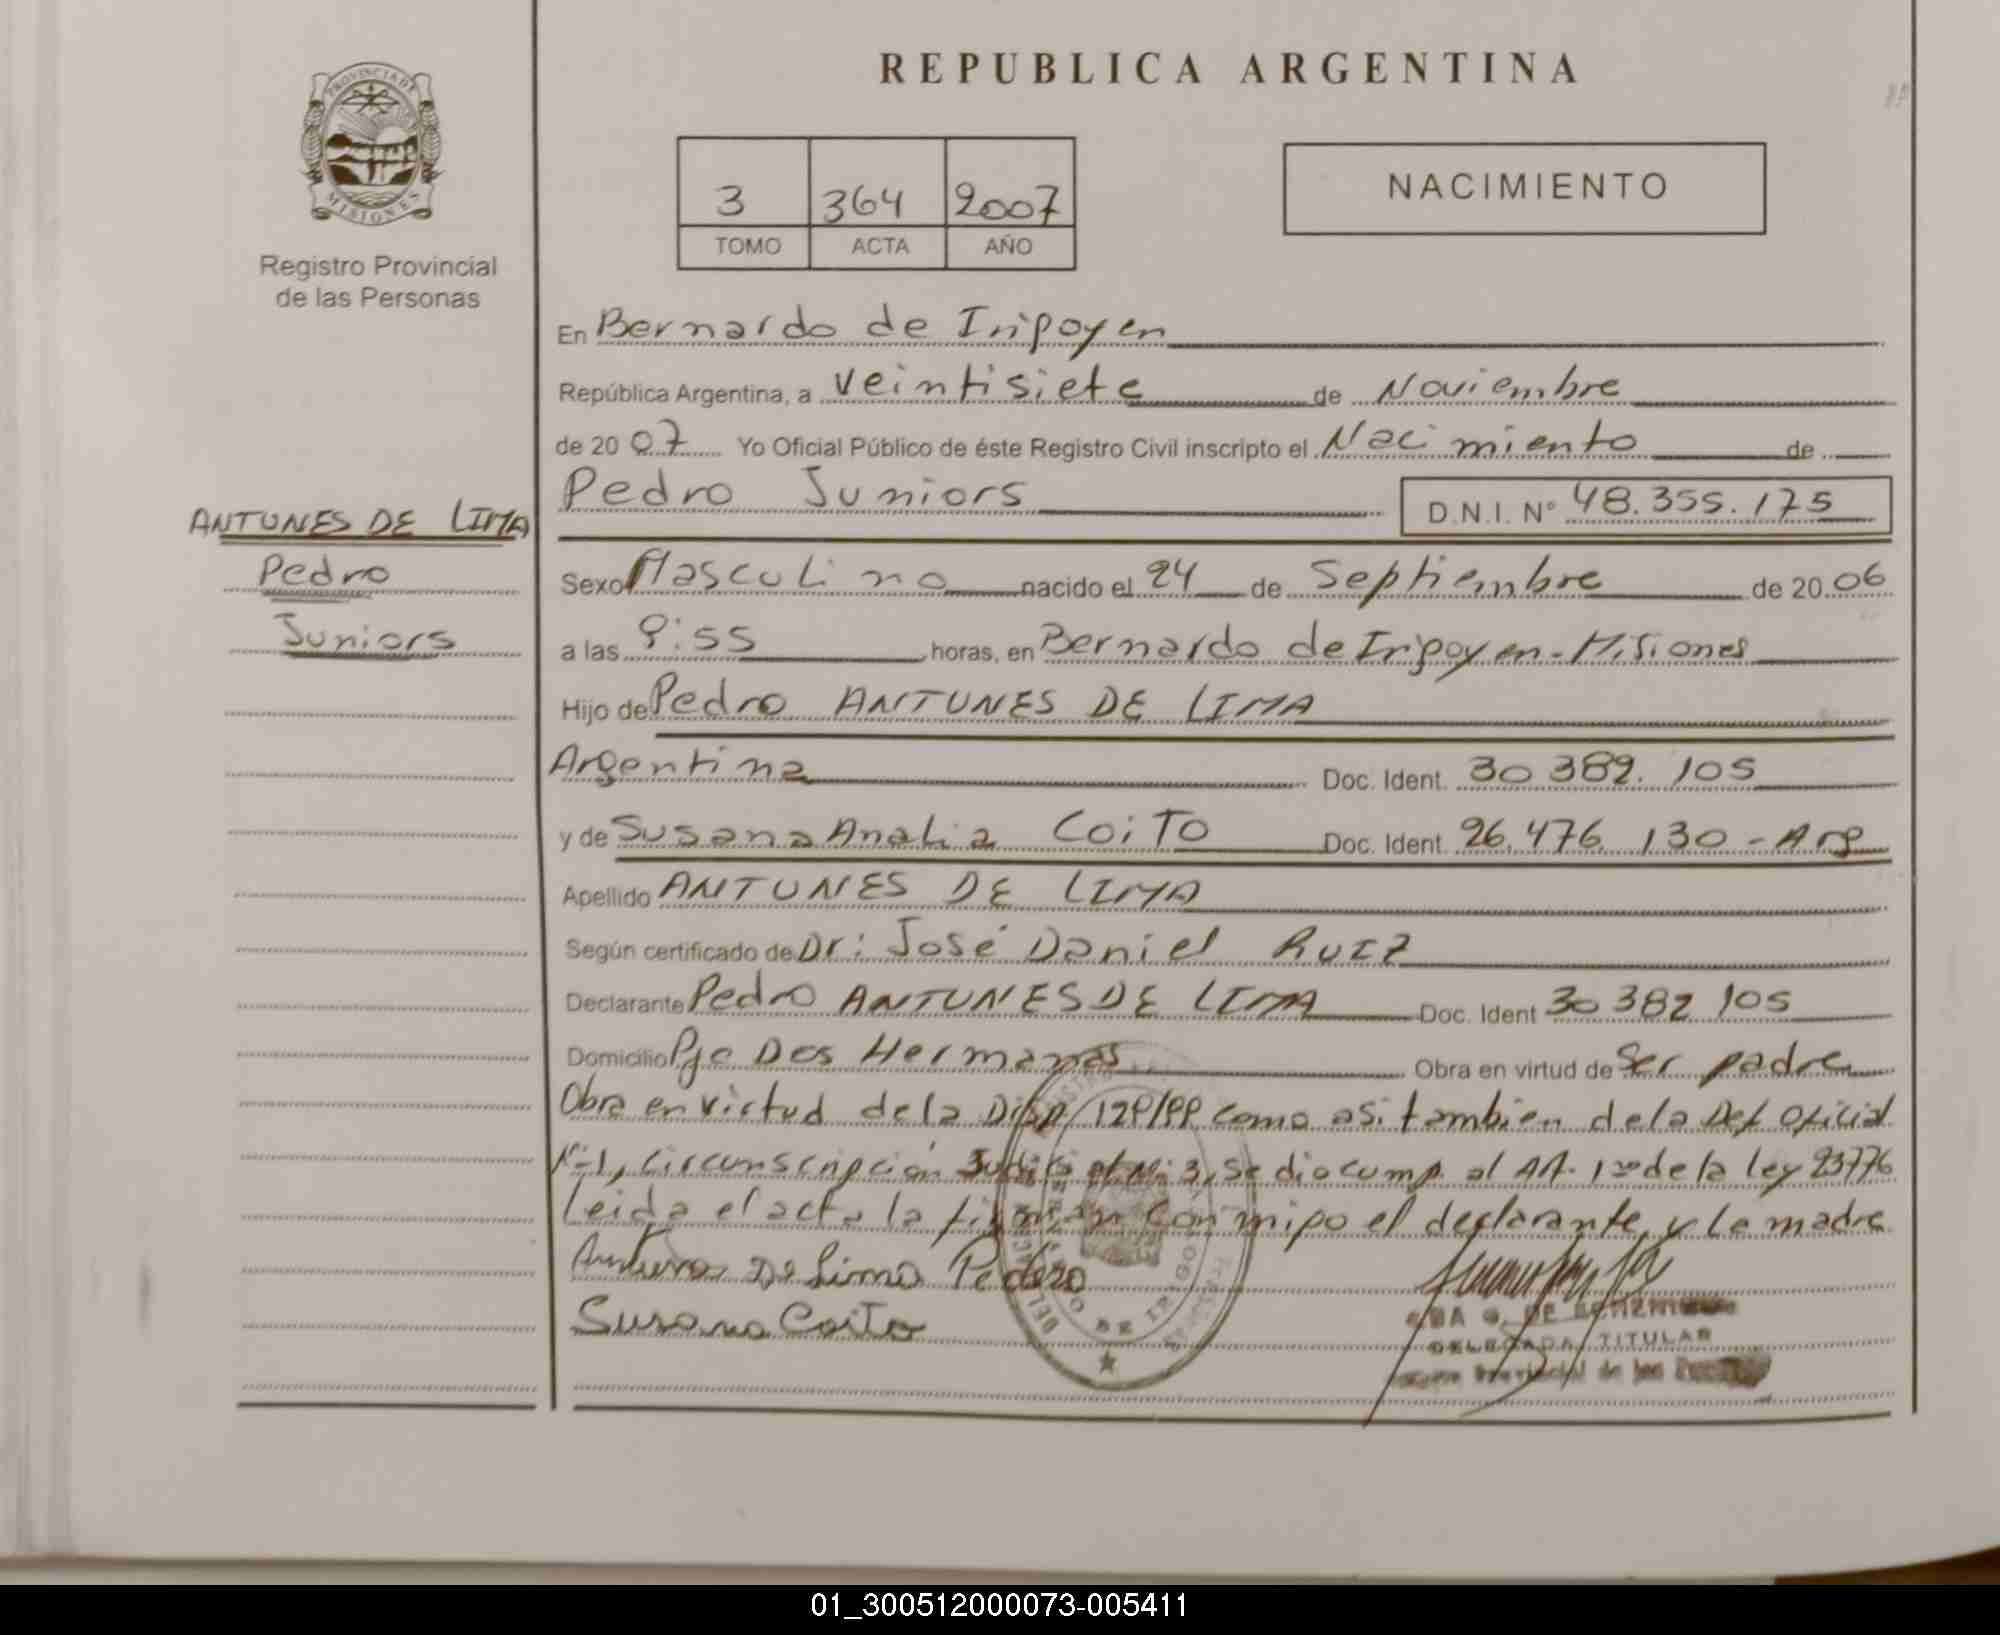 REPUBLICA ARGENTINA
PROVINCIA DE
MISIONES
Registro Provincial
de las Personas
3 364 2007
TOMO ACTA AÑO
NACIMIENTO
En Bernardo de Iripoyen
República Argentina, a veintisiete de Noviembre
de 20 07 Yo Oficial Público de éste Registro Civil inscripto el Nacimiento de
Pedro Juniors D.N.I. Nº 48.355.175
ANTUNES DE LIMA
Pedro
Juniors
Sexo Masculino nacido el 24 de Septiembre de 20 06
a las 9:55 horas, en Bernardo de Iripoyen - Misiones
Hijo de Pedro ANTUNES DE LIMA
Argentina Doc. Ident. 30 382. 105
y de Susana Analia COITO Doc. Ident. 26.476 130 - Arg
Apellido ANTUNES DE LIMA
Según certificado de Dr: José Daniel RUIZ
Declarante Pedro ANTUNES DE LIMA Doc. Ident 30 382 105
Domicilio Pje Dos Hermanas Obra en virtud de Ser padre
Obra en virtud de la Disp 129/99 como asi tambien de la Def Oficial
Nº1, Circunscripción Judicial Nº 3, se dio cump al Art. 1º de la ley 23776
Leida el acta la firman con mipo el declarante y la madre
Antunes De Lima Pedro
Susana Coito
DE IRIGOYEN
DELEGADA TITULAR
Provincial de las
01_300512000073-005411